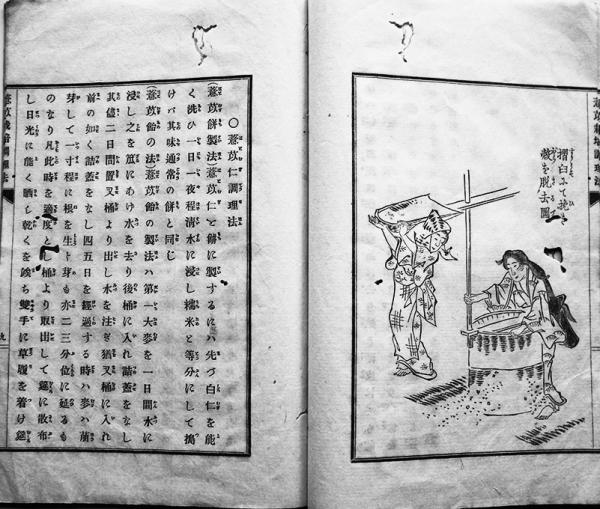 摺臼ふて挽き
殻を脱去圖
薏苡栽培調理法
〇薏苡仁調理法
(薏苡餅製法)薏苡仁を餅に製するにハ先づ白仁を能
く洗ひ一日一夜程清水に浸し糯米と等分にして搗
けバ其味通常の餅と同じ
(薏苡飴の法)薏苡飴の製法ハ第一大麥を一日間水に
浸し之を笊にあけ水を去り後桶に入れ詰蓋をなし
其儘二日間置又桶より出し水を注ぎ猶又桶に入れ
前の如く詰蓋をなし四五日を經過する時ハ麥ハ萠
芽して一寸程に根を生ト芽も亦二三分位に延るも
のなり凡此時を適度とし桶より取出して莚に散布
し日光に能く晒し乾くを竢ち雙手に草履を着け莚
薏苡栽培調理法
九